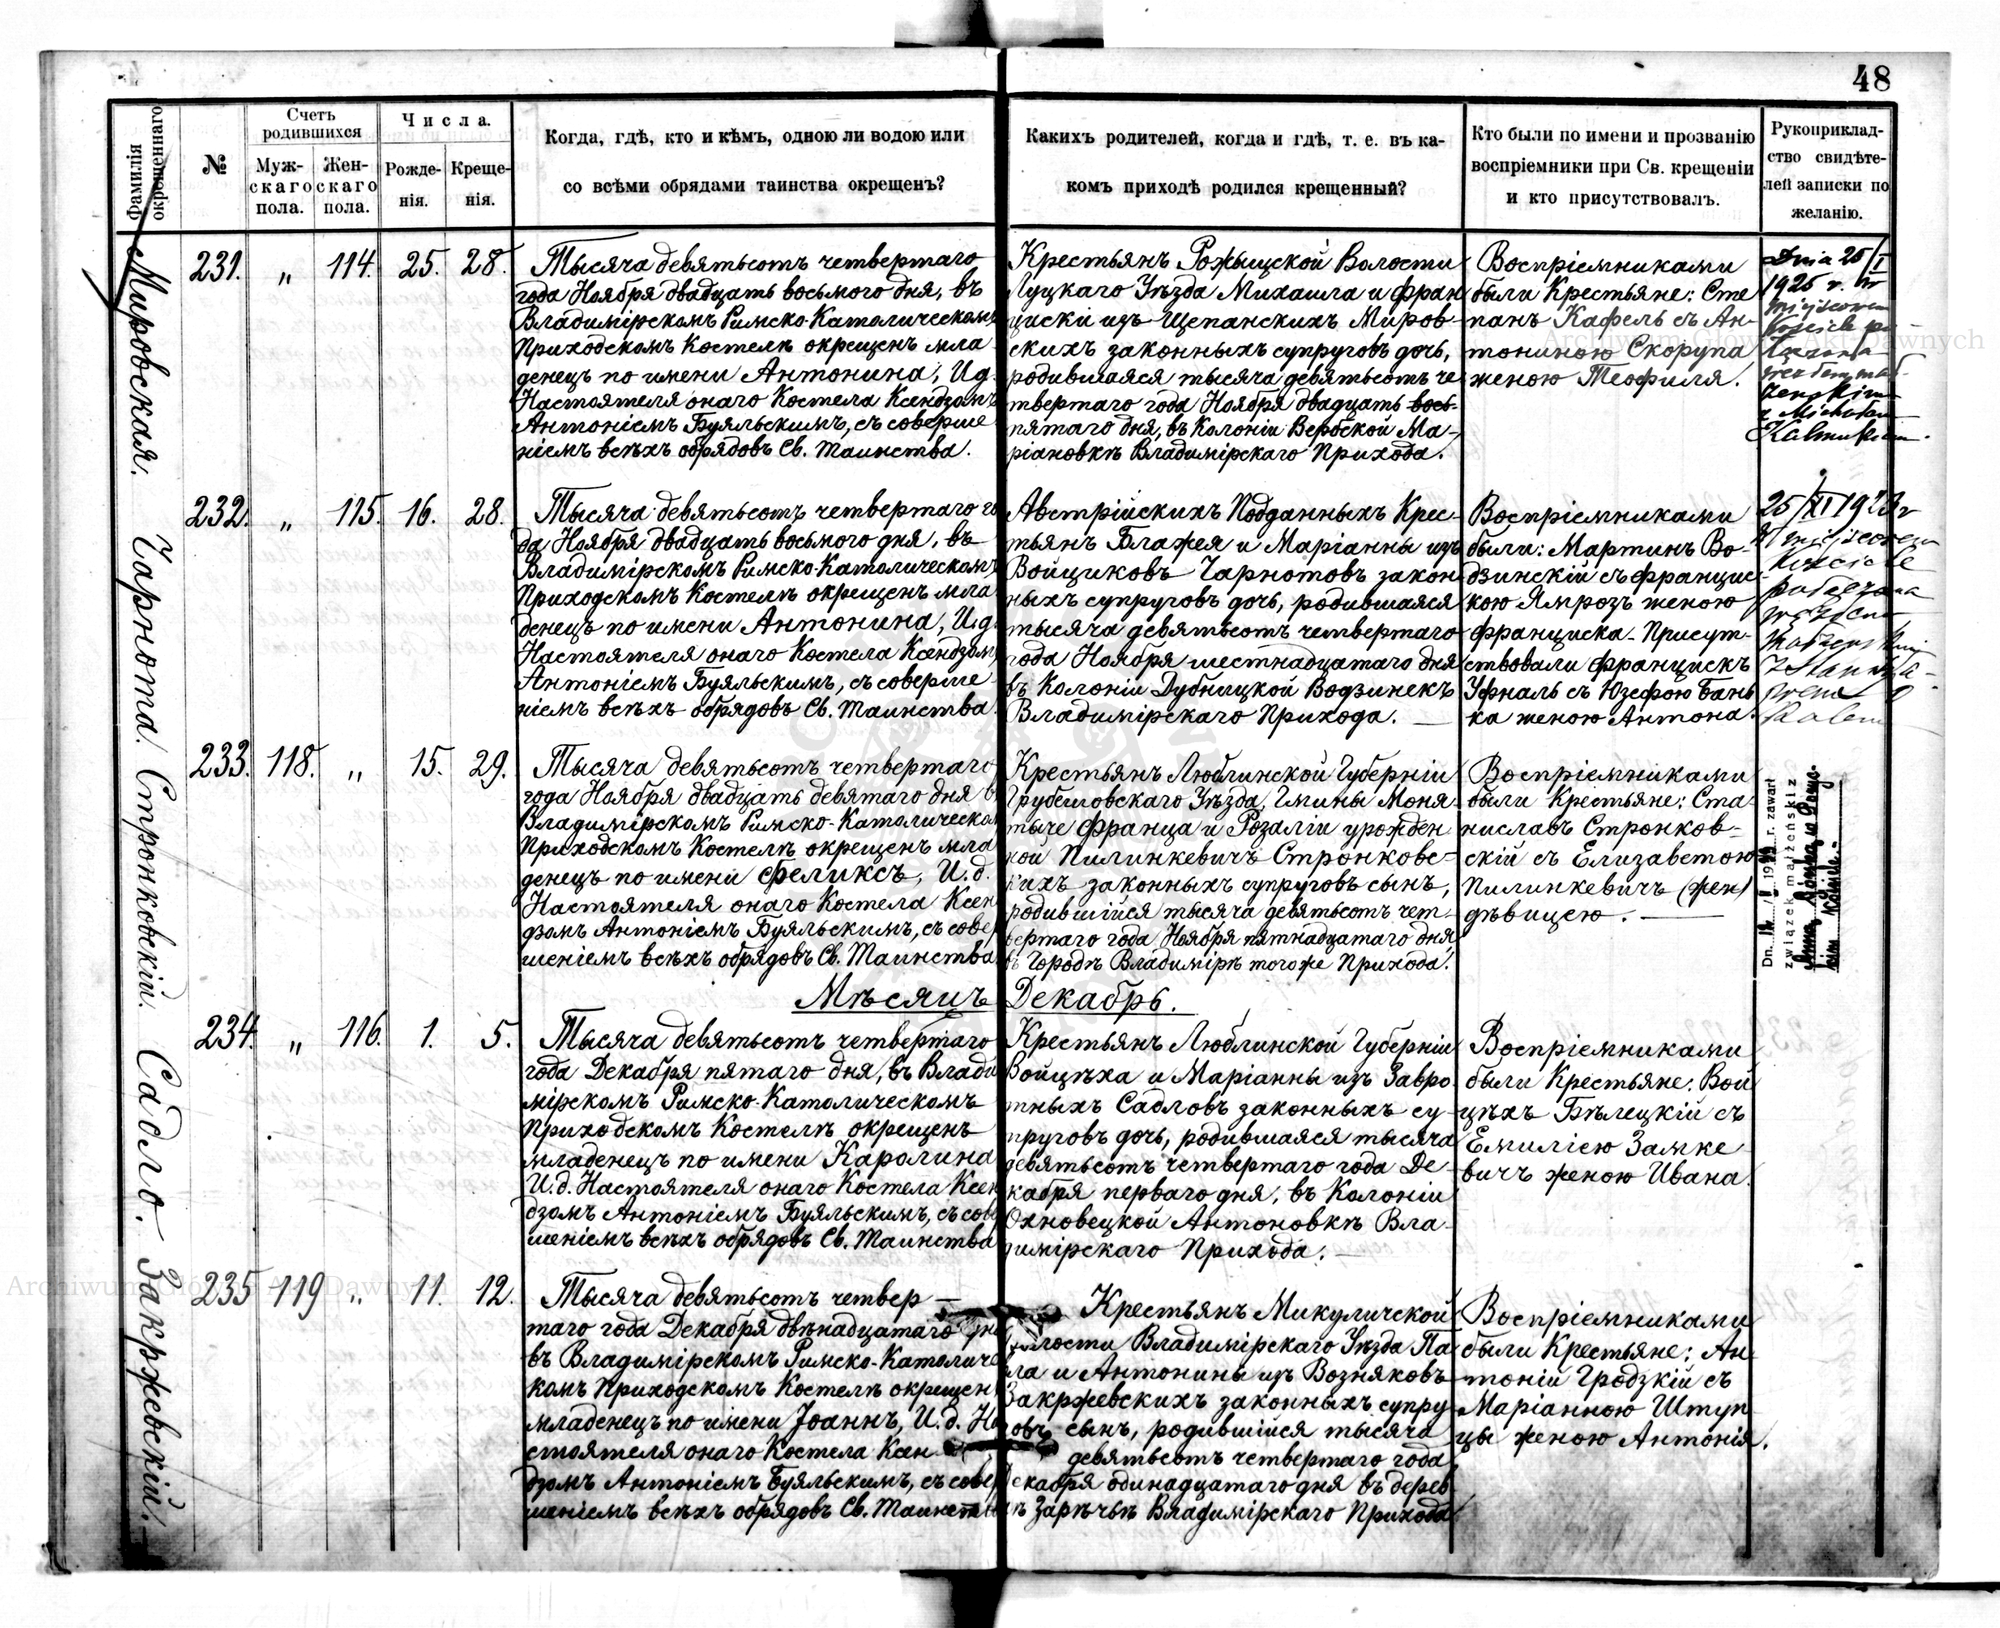 48
Фамилія окрещеннаго
№
Счетъ родившихся
Мужскаго пола.
Женскаго пола.
Числа.
Рожденія.
Крещенія.
Когда, гдѣ, кто и кѣмъ, одною ли водою или
со всѣми обрядами таинства окрещенъ?
Какихъ родителей, когда и гдѣ, т. е. въ ка-
комъ приходѣ родился крещенный?
Кто были по имени и прозванію
воспріемники при Св. крещеніи
и кто присутствовалъ.
Рукоприклад-
ство свидѣте-
лей записки по
желанію.
Мировская.
231. „ 114. 25. 28.
Тысяча девятьсотъ четвертаго
года Ноября двадцать восьмого дня, въ
Владимірскомъ Римско-Католическомъ
Приходскомъ Костелѣ окрещенъ мла
денецъ по имени Антонина, И.д.
Настоятеля онаго Костела Ксендзомъ
Антоніемъ Буяльскимъ, съ соверше
ніемъ всѣхъ обрядовъ Св. Таинства.
Крестьянъ Рожыщской Волости
Луцкаго Уѣзда Михаила и Фран
циски изъ Щепанскихъ Миров-
скихъ законныхъ супруговъ дочь,
родившаяся тысяча девятьсотъ че
твертаго года Ноября двадцать вось-
пятаго дня, въ Колоніи Вербской Ма-
ріановкѣ Владимірскаго Прихода.
Воспріемниками
были Крестьяне: Сте
панъ Кафель съ Ан-
тониною Скорупа
женою Теофиля.
Dnia 25/I
1925 r. w
miejscowym
kościele
z Michałem
Чарнота.
232. „ 115. 16. 28.
Тысяча девятьсотъ четвертаго го
да Ноября двадцать восьмого дня, въ
Владимірскомъ Римско-Католическомъ
Приходскомъ Костелѣ окрещенъ мла
денецъ по имени Антонина, И.д.
Настоятеля онаго Костела Ксендзомъ
Антоніемъ Буяльскимъ, съ соверше
ніемъ всѣхъ обрядовъ Св. Таинства.
Австрійскихъ Подданныхъ Крес-
тьянъ Блажея и Маріанны изъ
Войциковъ Чарнотовъ закон
ныхъ супруговъ дочь, родившаяся
тысяча девятьсотъ четвертаго
года Ноября шестнадцатаго дня
въ Колоніи Дубницкой Водзинекъ
Владимірскаго Прихода.
Воспріемниками
были: Мартинъ Во-
дзинскій съ Францис
кою Ямрозъ женою
Франциска. Присут-
ствовали Францискъ
Уфналь съ Юзефою Бань
ка женою Антона.
25/XI 192
w miejscowym
Kościele
Стронковскій.
233. 118. „ 15. 29.
Тысяча девятьсотъ четвертаго
года Ноября двадцать девятаго дня въ
Владимірскомъ Римско-Католическом
Приходскомъ Костелѣ окрещенъ мла
денецъ по имени Феликсъ, И.д.
Настоятеля онаго Костела Ксен
дзомъ Антоніемъ Буяльскимъ, съ совер
шеніемъ всѣхъ обрядовъ Св. Таинства
Крестьянъ Люблинской Губерніи
Грубешовскаго Уѣзда, Гмины Моня-
тыче Франца и Розаліи урожден
ной Пилинкевичъ Стронковс-
кихъ законныхъ супруговъ сынъ,
родившійся тысяча девятьсотъ чет-
вертаго года Ноября пятнадцатаго дня
въ Городѣ Владимірѣ тогоже Прихода.
Воспріемниками
были Крестьяне: Ста-
ниславъ Стронков-
скій съ Елизаветою
Пилинкевичъ (жен)
дѣвицею.
zawarł
związek małżeński z
Мѣсяцъ Декабрь.
Садло.
234. „ 116. 1. 5.
Тысяча девятьсотъ четвертаго
года Декабря пятаго дня, въ Влади
мірскомъ Римско-Католическомъ
Приходскомъ Костелѣ окрещенъ
младенецъ по имени Каролина
И.д. Настоятеля онаго Костела Ксен
дзомъ Антоніемъ Буяльскимъ, съ сов
шеніемъ всѣхъ обрядовъ Св. Таинства
Крестьянъ Люблинской Губерніи
Войцѣха и Маріанны изъ Завро
тныхъ Садловъ законныхъ су-
пруговъ дочь, родившаяся тысяча
девятьсотъ четвертаго года Де-
кабря перваго дня, въ Колоніи
Охновецкой Антоновкѣ Вла-
димірскаго Прихода.
Воспріемниками
были Крестьяне: Вой
цѣхъ Бѣлецкій съ
Емиліею Замке
вичъ женою Ивана.
Закржевскій.
235 119 „ 11. 12.
Тысяча девятьсотъ четвер-
таго года Декабря двѣнадцатаго дня
въ Владимірскомъ Римско-Католиче
комъ Приходскомъ Костелѣ окрещен
младенецъ по имени Іоаннъ, И.д. На
стоятеля онаго Костела Ксен
дзомъ Антоніемъ Буяльскимъ, съ совер
шеніемъ всѣхъ обрядовъ Св. Таинства
Крестьянъ Микуличской
Волости Владимірскаго Уѣзда Па
вла и Антонины изъ Возняковъ
Закржевскихъ законныхъ супру
говъ сынъ, родившійся тысяча
девятьсотъ четвертаго года
Декабря одинадцатаго дня въ дерев
нѣ Зарѣчьѣ Владимірскаго Прихода
Воспріемниками
были Крестьяне: Ан
тоній Гродзкій съ
Маріанною Штуп
цы женою Антонія.
Archiwum Główne Akt Dawnych